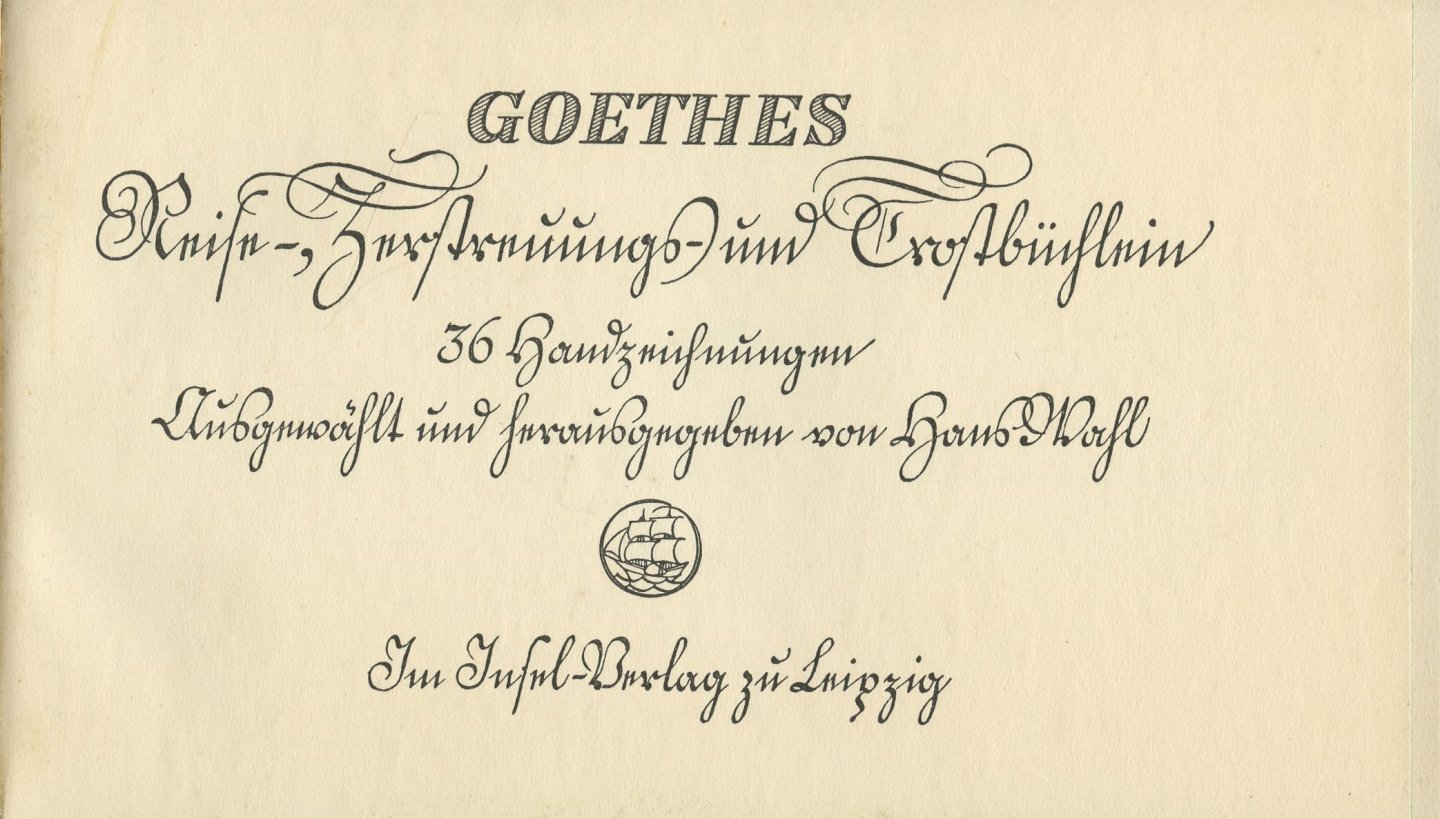 GOETHES
Reise-, Zerstreuungs- und Trostbüchlein
36 Handzeichnungen
Ausgewählt und herausgegeben von Hans Wahl
Im Insel-Verlag zu Leipzig